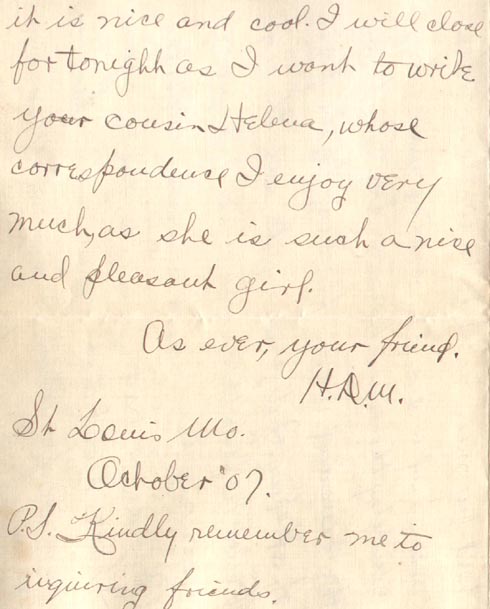 it is nice and cool. I will close
for tonight as I want to write
your cousin Helena, whose
correspondence I enjoy very
much, as she is such a nice
and pleasant girl.
As ever, your friend.
H.D.M.
St Louis Mo.
October '07.
P.S. Kindly remember me to
inquiring friends.